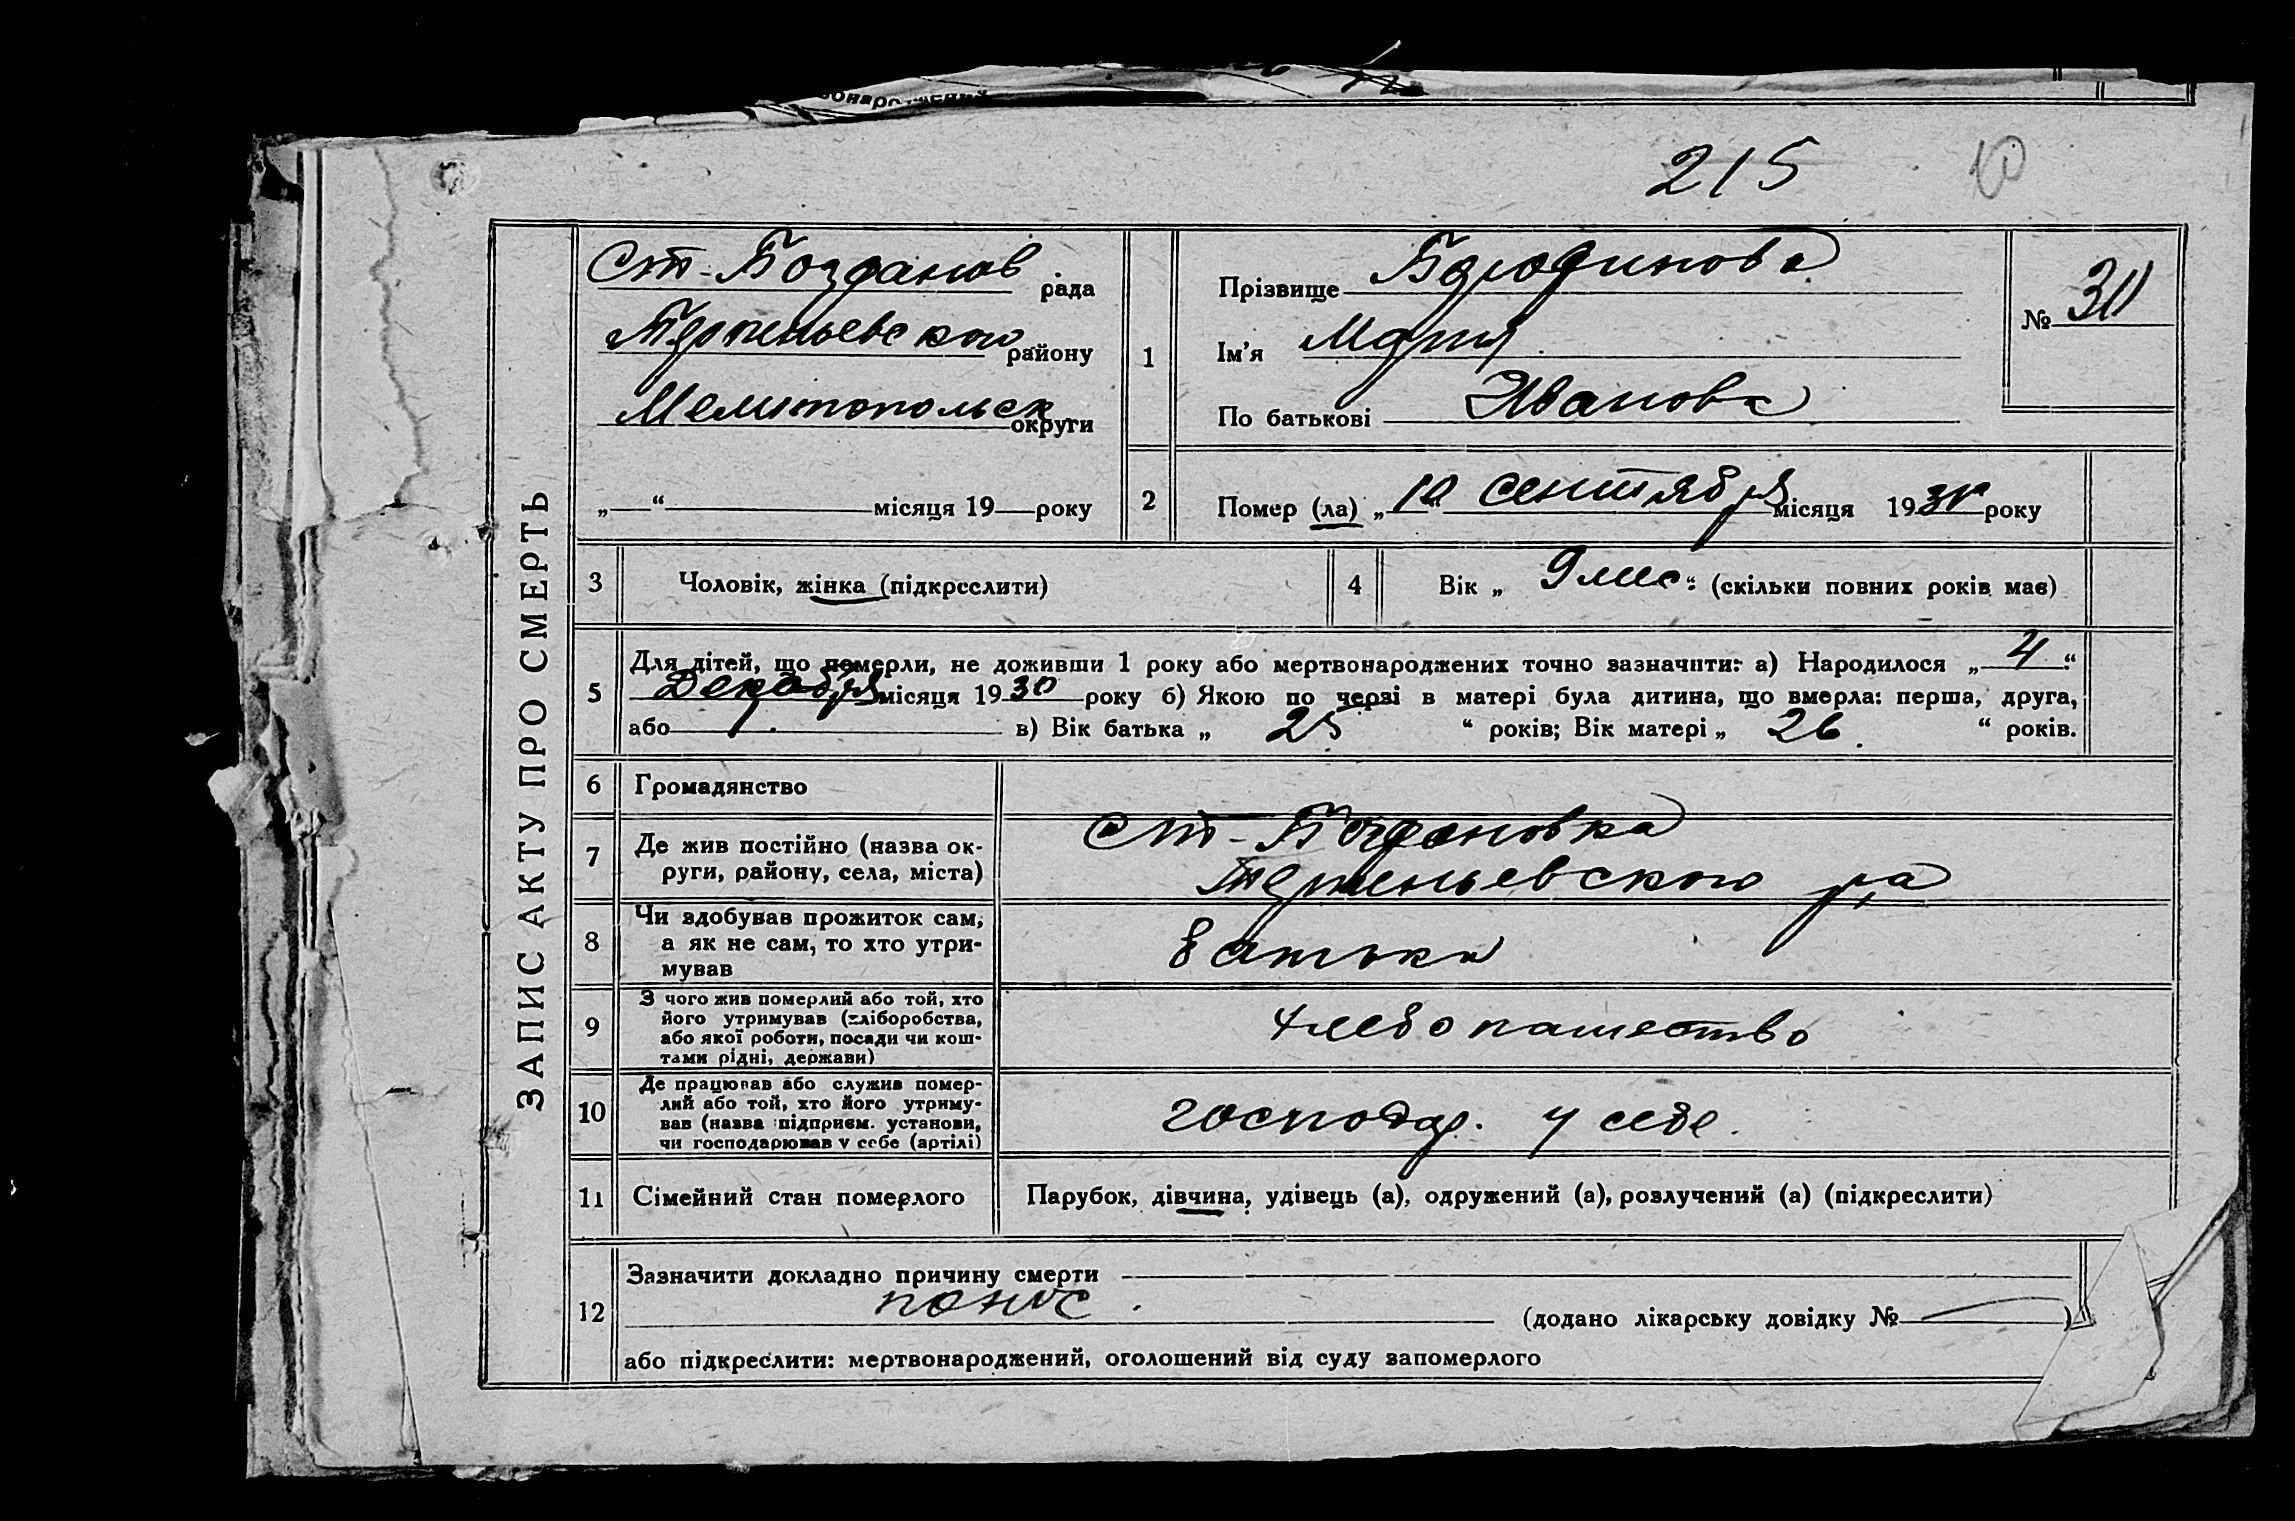 215 10
ЗАПИС АКТУ ПРО СМЕРТЬ
Ст-Богданов рада
Терпеньевского району
Мелитопольск округи
„ “ місяця 19 року
1
Прізвище Бородинова
Ім’я Мария
По батькові Иванова
№ 30
2
Помер (ла) „ 10 “ сентября місяця 1930 року
3 Чоловік, жінка (підкреслити)
4 Вік „ 9 мес “ (скільки повних років має)
5
Для дітей, що померли, не доживши 1 року або мертвонароджених точно зазначити: а) Народилося „ 4 “
Декабря місяця 1930 року б) Якою по черзі в матері була дитина, що вмерла: перша, друга,
або 1. в) Вік батька „ 25 “ років; Вік матері „ 26 “ років.
6 Громадянство
7 Де жив постійно (назва ок-
руги, району, села, міста)
Ст-Богдановка
Терпеньевского р-а
8 Чи здобував прожиток сам,
а як не сам, то хто утри-
мував
батьки
9 З чого жив померлий або той, хто
його утримував (хліборобства,
або якої роботи, посади чи кош-
тами рідні, держави)
хлебопашество
10 Де працював або служив помер-
лий або той, хто його утриму-
вав (назва підприєм. установи,
чи господарював у себе (артілі)
господар. у себе.
11 Сімейний стан померлого
Парубок, дівчина, удівець (а), одружений (а), розлучений (а) (підкреслити)
12
Зазначити докладно причину смерти
понос.
(додано лікарську довідку № )
або підкреслити: мертвонароджений, оголошений від суду запомерлого